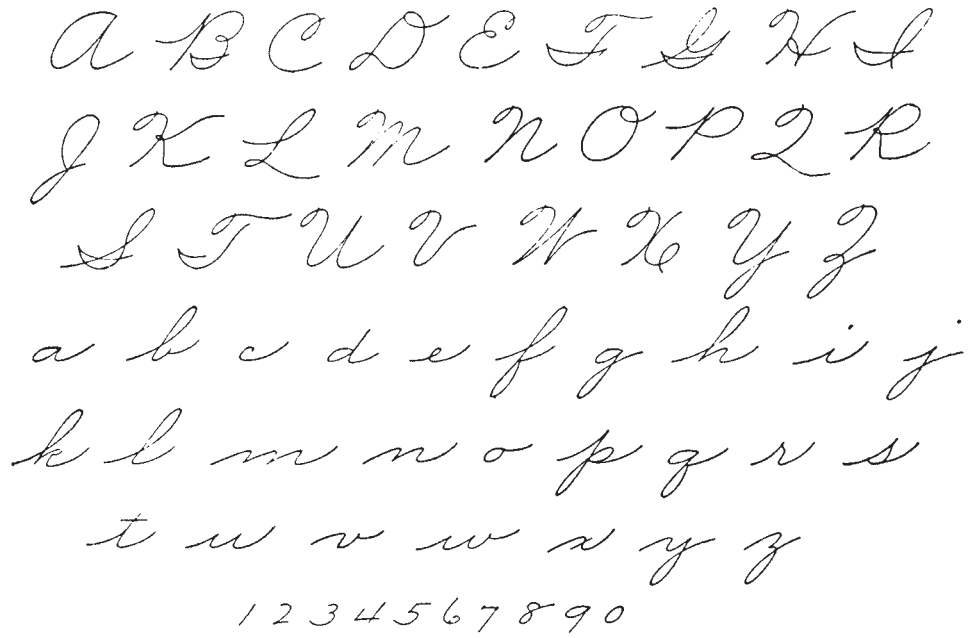 A B C D E F G H I
J K L M N O P Q R
S T U V W X Y Z
a b c d e f g h i j
k l m n o p q r s
t u v w x y z
1 2 3 4 5 6 7 8 9 0